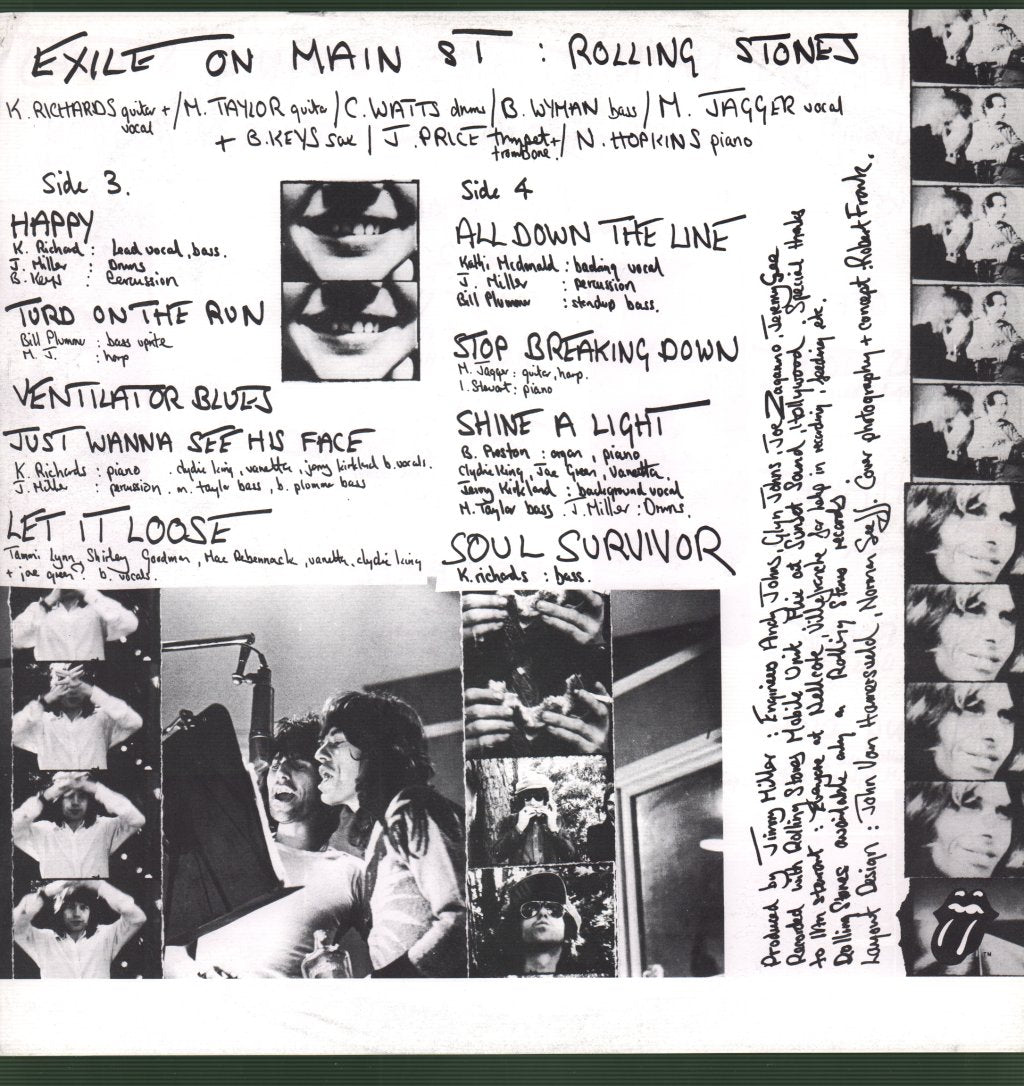 EXILE ON MAIN ST : ROLLING STONES
K. RICHARDS guitar + vocal / M. TAYLOR guitar / C. WATTS drums / B. WYMAN bass / M. JAGGER vocal
+ B. KEYS sax / J. PRICE trumpet + trombone. / N. HOPKINS piano
Side 3.
HAPPY
K. Richard : Lead vocal, bass.
J. Miller : Drums
B. Keys : Percussion
TURD ON THE RUN
Bill Plummer : bass uprite
M. J. : harp
VENTILATOR BLUES
JUST WANNA SEE HIS FACE
K. Richards : piano . clydie king, vanetta, jerry kirkland b. vocals.
J. Miller : percussion . m. taylor bass, b. plummer bass
LET IT LOOSE
Tammi Lynn, Shirley Goodman, Mac Rebennack, vanetta, clydie king
+ joe green : b. vocals.
Side 4
ALL DOWN THE LINE
Kathi Mcdonald : backing vocal
J. Miller : percussion
Bill Plummer : standup bass.
STOP BREAKING DOWN
M. Jagger : guitar, harp.
I. Stewart : piano
SHINE A LIGHT
B. Preston : organ, piano
Clydie King, Joe Green, Vanetta.
Jerry Kirkland : background vocal
M. Taylor bass J. Miller : Drums.
SOUL SURVIVOR
K. richards : bass.
Produced by Jimmy Miller : Engineers Andy Johns, Glyn Johns, Joe Zaganno, Jeremy Gee
Recorded with Rolling Stones Mobile Unit Plus at Sunset Sound, Hollywood . Special thanks
to IAn stewart : Everyone at Nellcote, Villefranche for help in recording, feeding etc.
Rolling Stones available only on Rolling Stones records
Layout Design : John Van Hamersveld, Norman Seeff. Cover photography + concept : Robert Frank.
TM